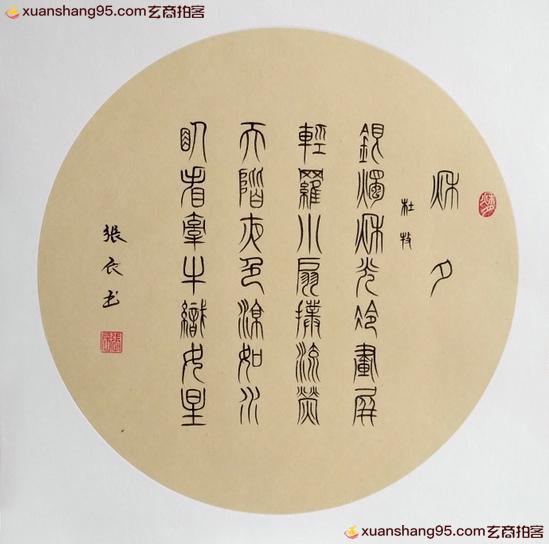 xuanshang95.com玄商拍客
xuanshang95.com玄商拍客
秋夕
杜牧
銀燭秋光冷畫屏
輕羅小扇撲流螢
天階夜色涼如水
臥看牽牛織女星
張 书
xuanshang95.com玄商拍客